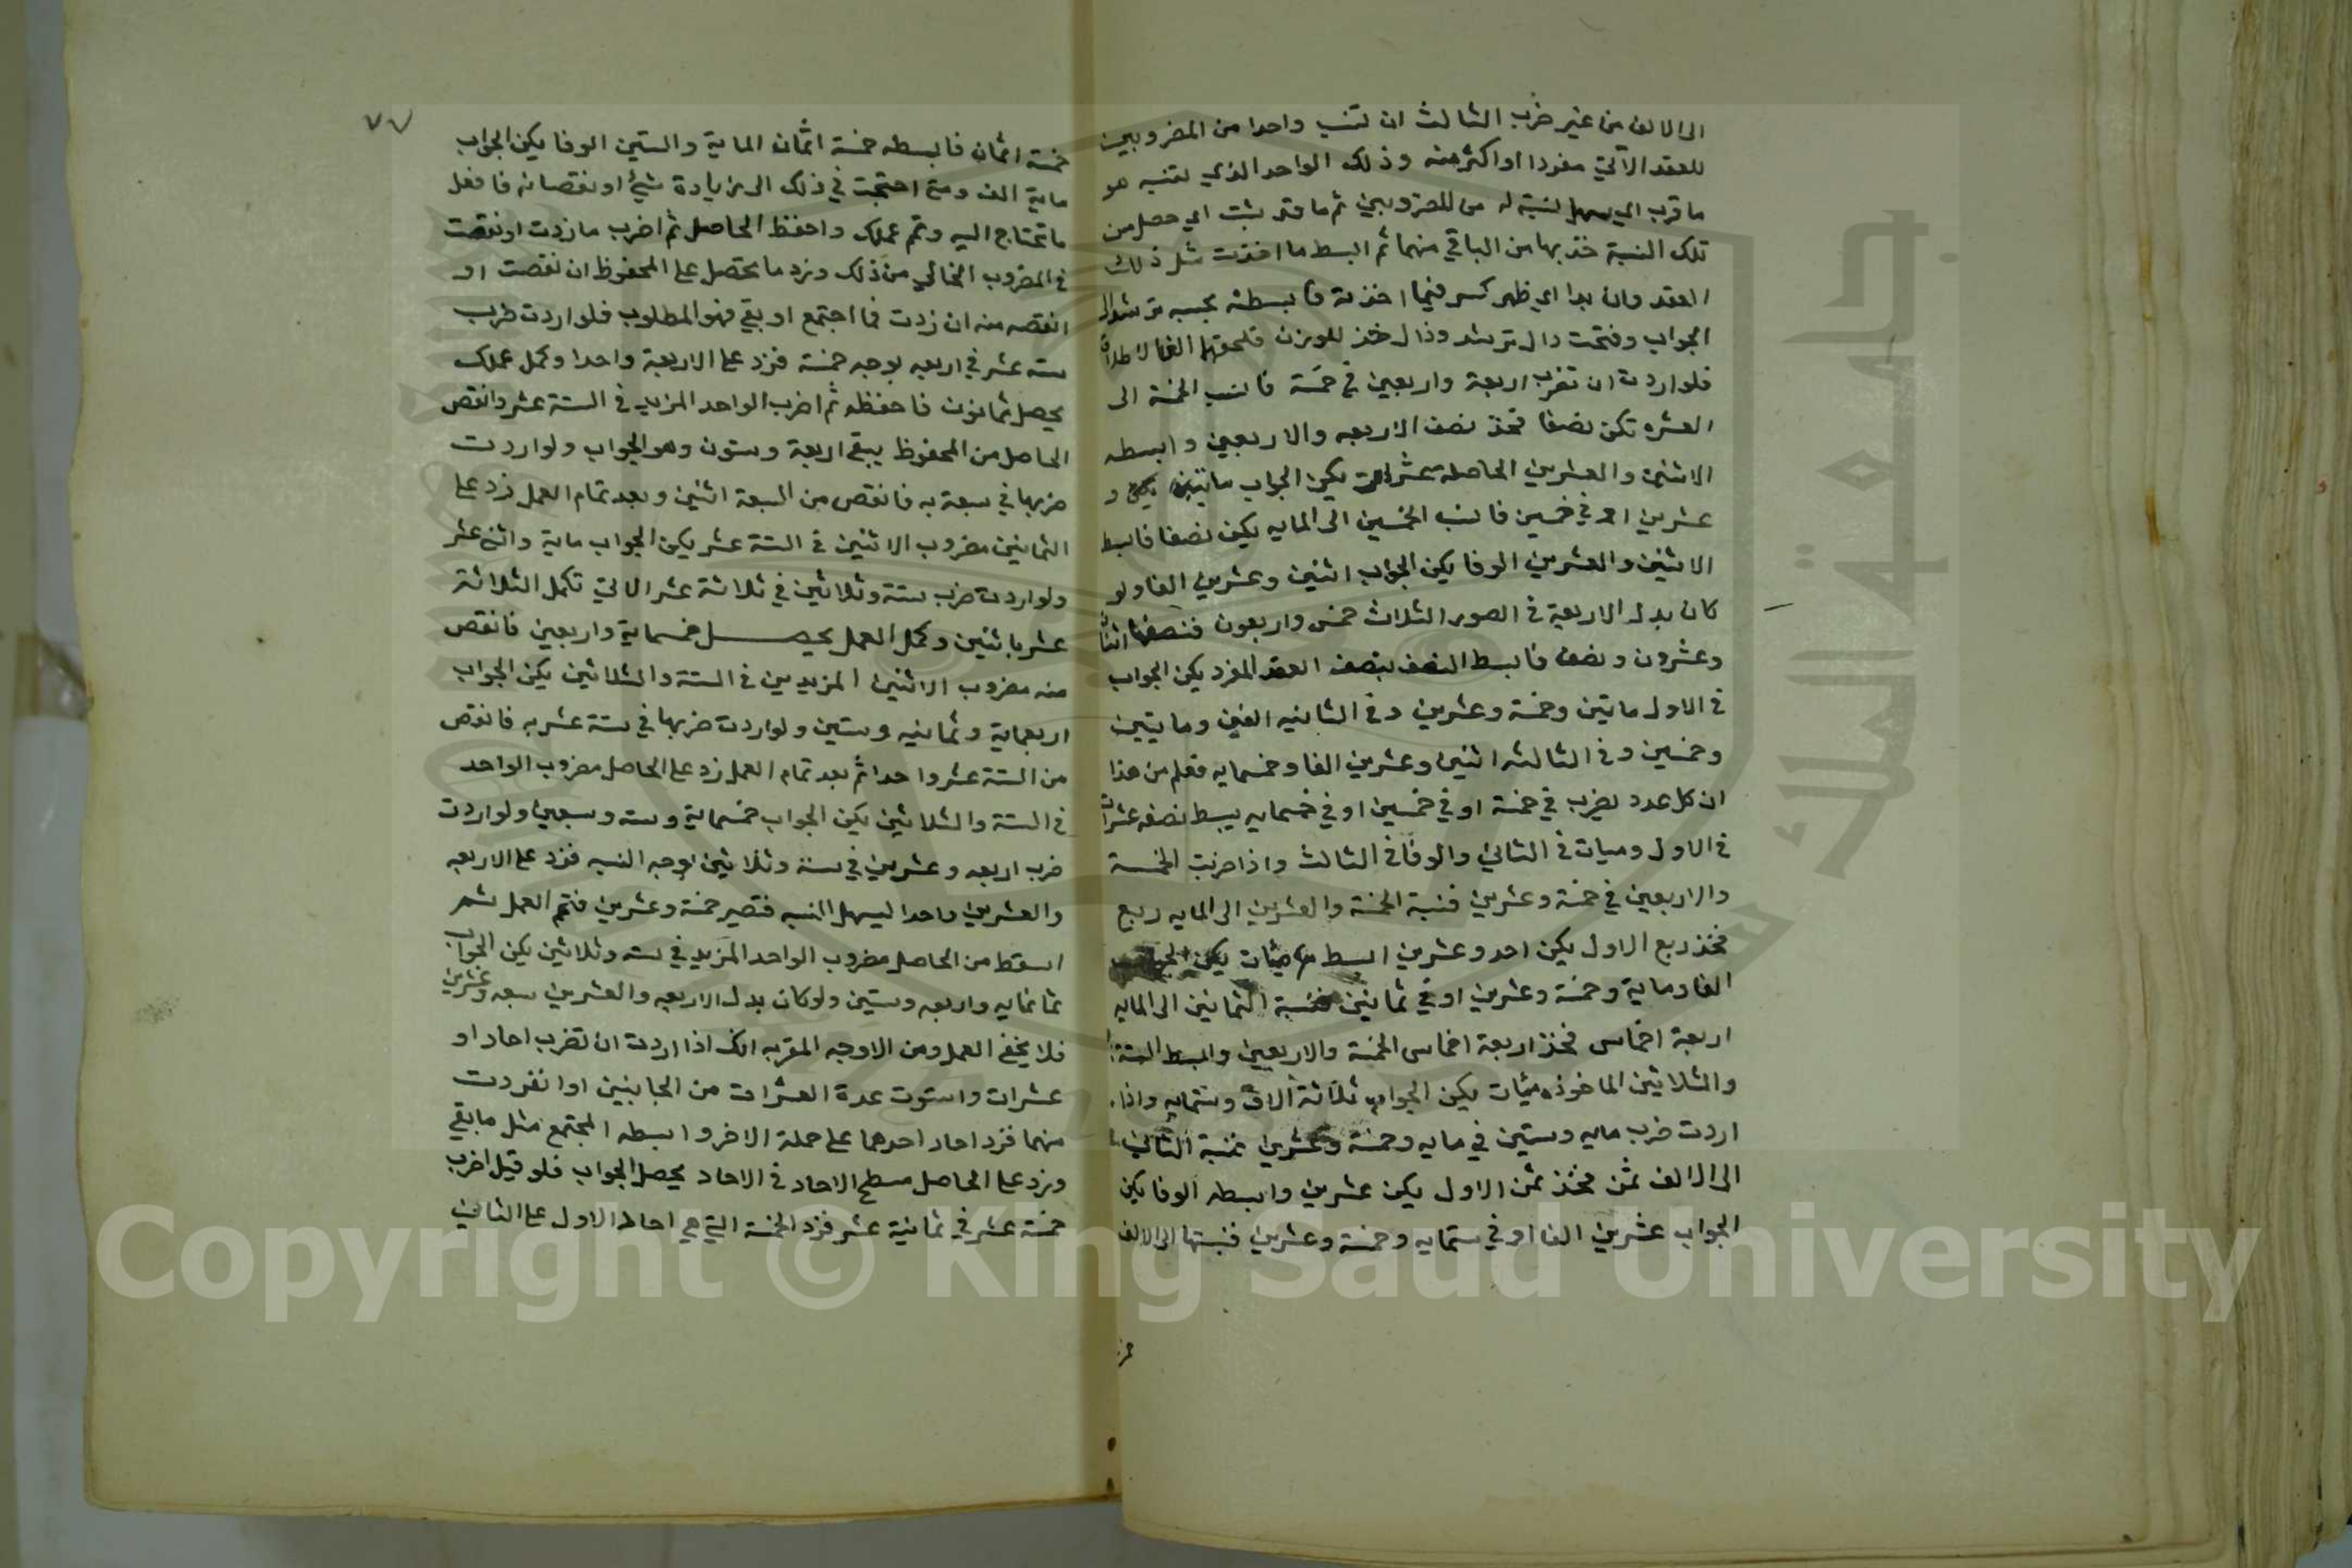 الى الالف من غير ضرب الثالث ان تنسب واحدا من المضروبين
للعقد الآتي مفردا او اكثر منه وذلك الواحد الذي تنسبه هو
ما قرب اي يسهل نسبته له من المضروبين ثم ما قد بثت اي حصل من
تلك النسبة خذ بها من الباقي منهما ثم ابسط ما اخذت مثل ذلك
العقد وان بدا اي ظهر كسر فيما اخذته فابسطه بحسبه ترشد الى
الجواب وفتحت دال ترشد وذال خذ للوزن فلحقتها الف الاطلاق
فلو اردت ان تضرب اربعة واربعين في خمسة فانسب الخمسة الى
العشره تكن نصفا فخذ نصف الاربعه والاربعين وابسطه
الاثنين والعشرين الحاصله عشرات يكن الجواب مايتين و
عشرين او في خمسين فانسب الخمسين الى المايه يكن نصفا فابسط
الاثنين والعشرين الوفا يكن الجواب اثنين وعشرين الفا ولو
كان بدل الاربعة في الصور الثلاث خمس واربعون فنصفها اثنان
وعشرون ونصف فابسط النصف بنصف العقد المفرد يكن الجواب
في الاول مايتين وخمسة وعشرين وفي الثانيه الفين ومايتين
وخمسين وفي الثالثه اثنين وعشرين الفا وخمسمايه فعلم من هذا
ان كل عدد يضرب في خمسة او في خمسين او في خمسمايه يبسط نصفه عشرات
في الاول وميات في الثاني والوفا في الثالث واذا ضربت الخمسة
والاربعين في خمسة وعشرين فنسبة الخمسة والعشرين الى المايه ربع
فخذ ربع الاول يكن احد وعشرين ابسط مئات يكن الجواب
الفا وماية وخمسة وعشرين او في ثمانين فنسبة الثمانين الى المايه
اربعة اخماس فخذ اربعة اخماس الخمسة والاربعين وابسط الستة
والثلاثين الماخوذه ميئات يكن الجواب ثلاثة آلاف وستمايه واذا
اردت ضرب مايه وستين في مايه وخمسة وعشرين فنسبة الثاني
الى الالف ثمن فخذ ثمن الاول يكن عشرين وابسطه الوفا يكن
الجواب عشرين الفا او في ستمايه وخمسة وعشرين فنسبتها الى الالف
٧٧
خمسة اثمان فابسطه خمسة اثمان الماية والستين الوفا يكن الجواب
ماية الف ومتى احتجت في ذلك الى زيادة شيء او نقصانه فافعل
ما تحتاج اليه وتمم عملك واحفظ الحاصل ثم اضرب ما زدت او نقصت
في المضروب الخالي من ذلك وزد ما يحصل على المحفوظ ان نقصت او
انقصه منه ان زدت فما اجتمع او بقي فهو المطلوب فلو اردت ضرب
سته عشر في اربعه بوجه خمسة فزد على الاربعة واحدا وكمل عملك
يحصل ثمانون فاحفظه ثم اضرب الواحد المزيد في الستة عشر وانقص
الحاصل من المحفوظ يبقى اربعة وستون وهو الجواب ولو اردت
ضربها في سبعة به فانقص من السبعة اثنين وبعد تمام العمل زد على
الثمانين مضروب الاثنين في الستة عشر يكن الجواب ماية واثني عشر
ولو اردت ضرب ستة وثلاثين في ثلاثة عشر الاتي تكمل الثلاثة
عشر باثنين وكمل العمل يحصل خمسماية واربعين فانقص
منه مضروب الاثنين المزيدين في الستة والثلاثين يكن الجواب
اربعماية وثمانيه وستين ولو اردت ضربها في ستة عشر به فانقص
من الستة عشر واحدا ثم بعد تمام العمل زد على الحاصل مضروب الواحد
في الستة والثلاثين يكن الجواب خمسماية وسته وسبعين ولو اردت
ضرب اربعه وعشرين في ستة وثلاثين بوجه النسبه فزد على الاربعه
والعشرين واحدا ليسهل النسبه فتصير خمسة وعشرين فتمم العمل ثم
اسقط من الحاصل مضروب الواحد المزيد في سته وثلاثين يكن الجواب
ثمانمايه واربعه وستين ولو كان بدل الاربعه والعشرين سبعه وعشرين
فلا يخفى العمل ومن الاوجه المقربه انك اذا اردت ان تضرب احاد او
عشرات واستوت عدة العشرات من الجانبين او انفردت
منهما فزد احاد احدهما على جملة الاخر وابسطه المجتمع مثل ما بقي
وزد على الحاصل مسطح الاحاد في الاحاد يحصل الجواب فلو قيل اضرب
خمسة عشر في ثمانية عشر فزد الخمسة التي هي احاد الاول على الثاني
Copyright © King Saud University
جامعة الملك